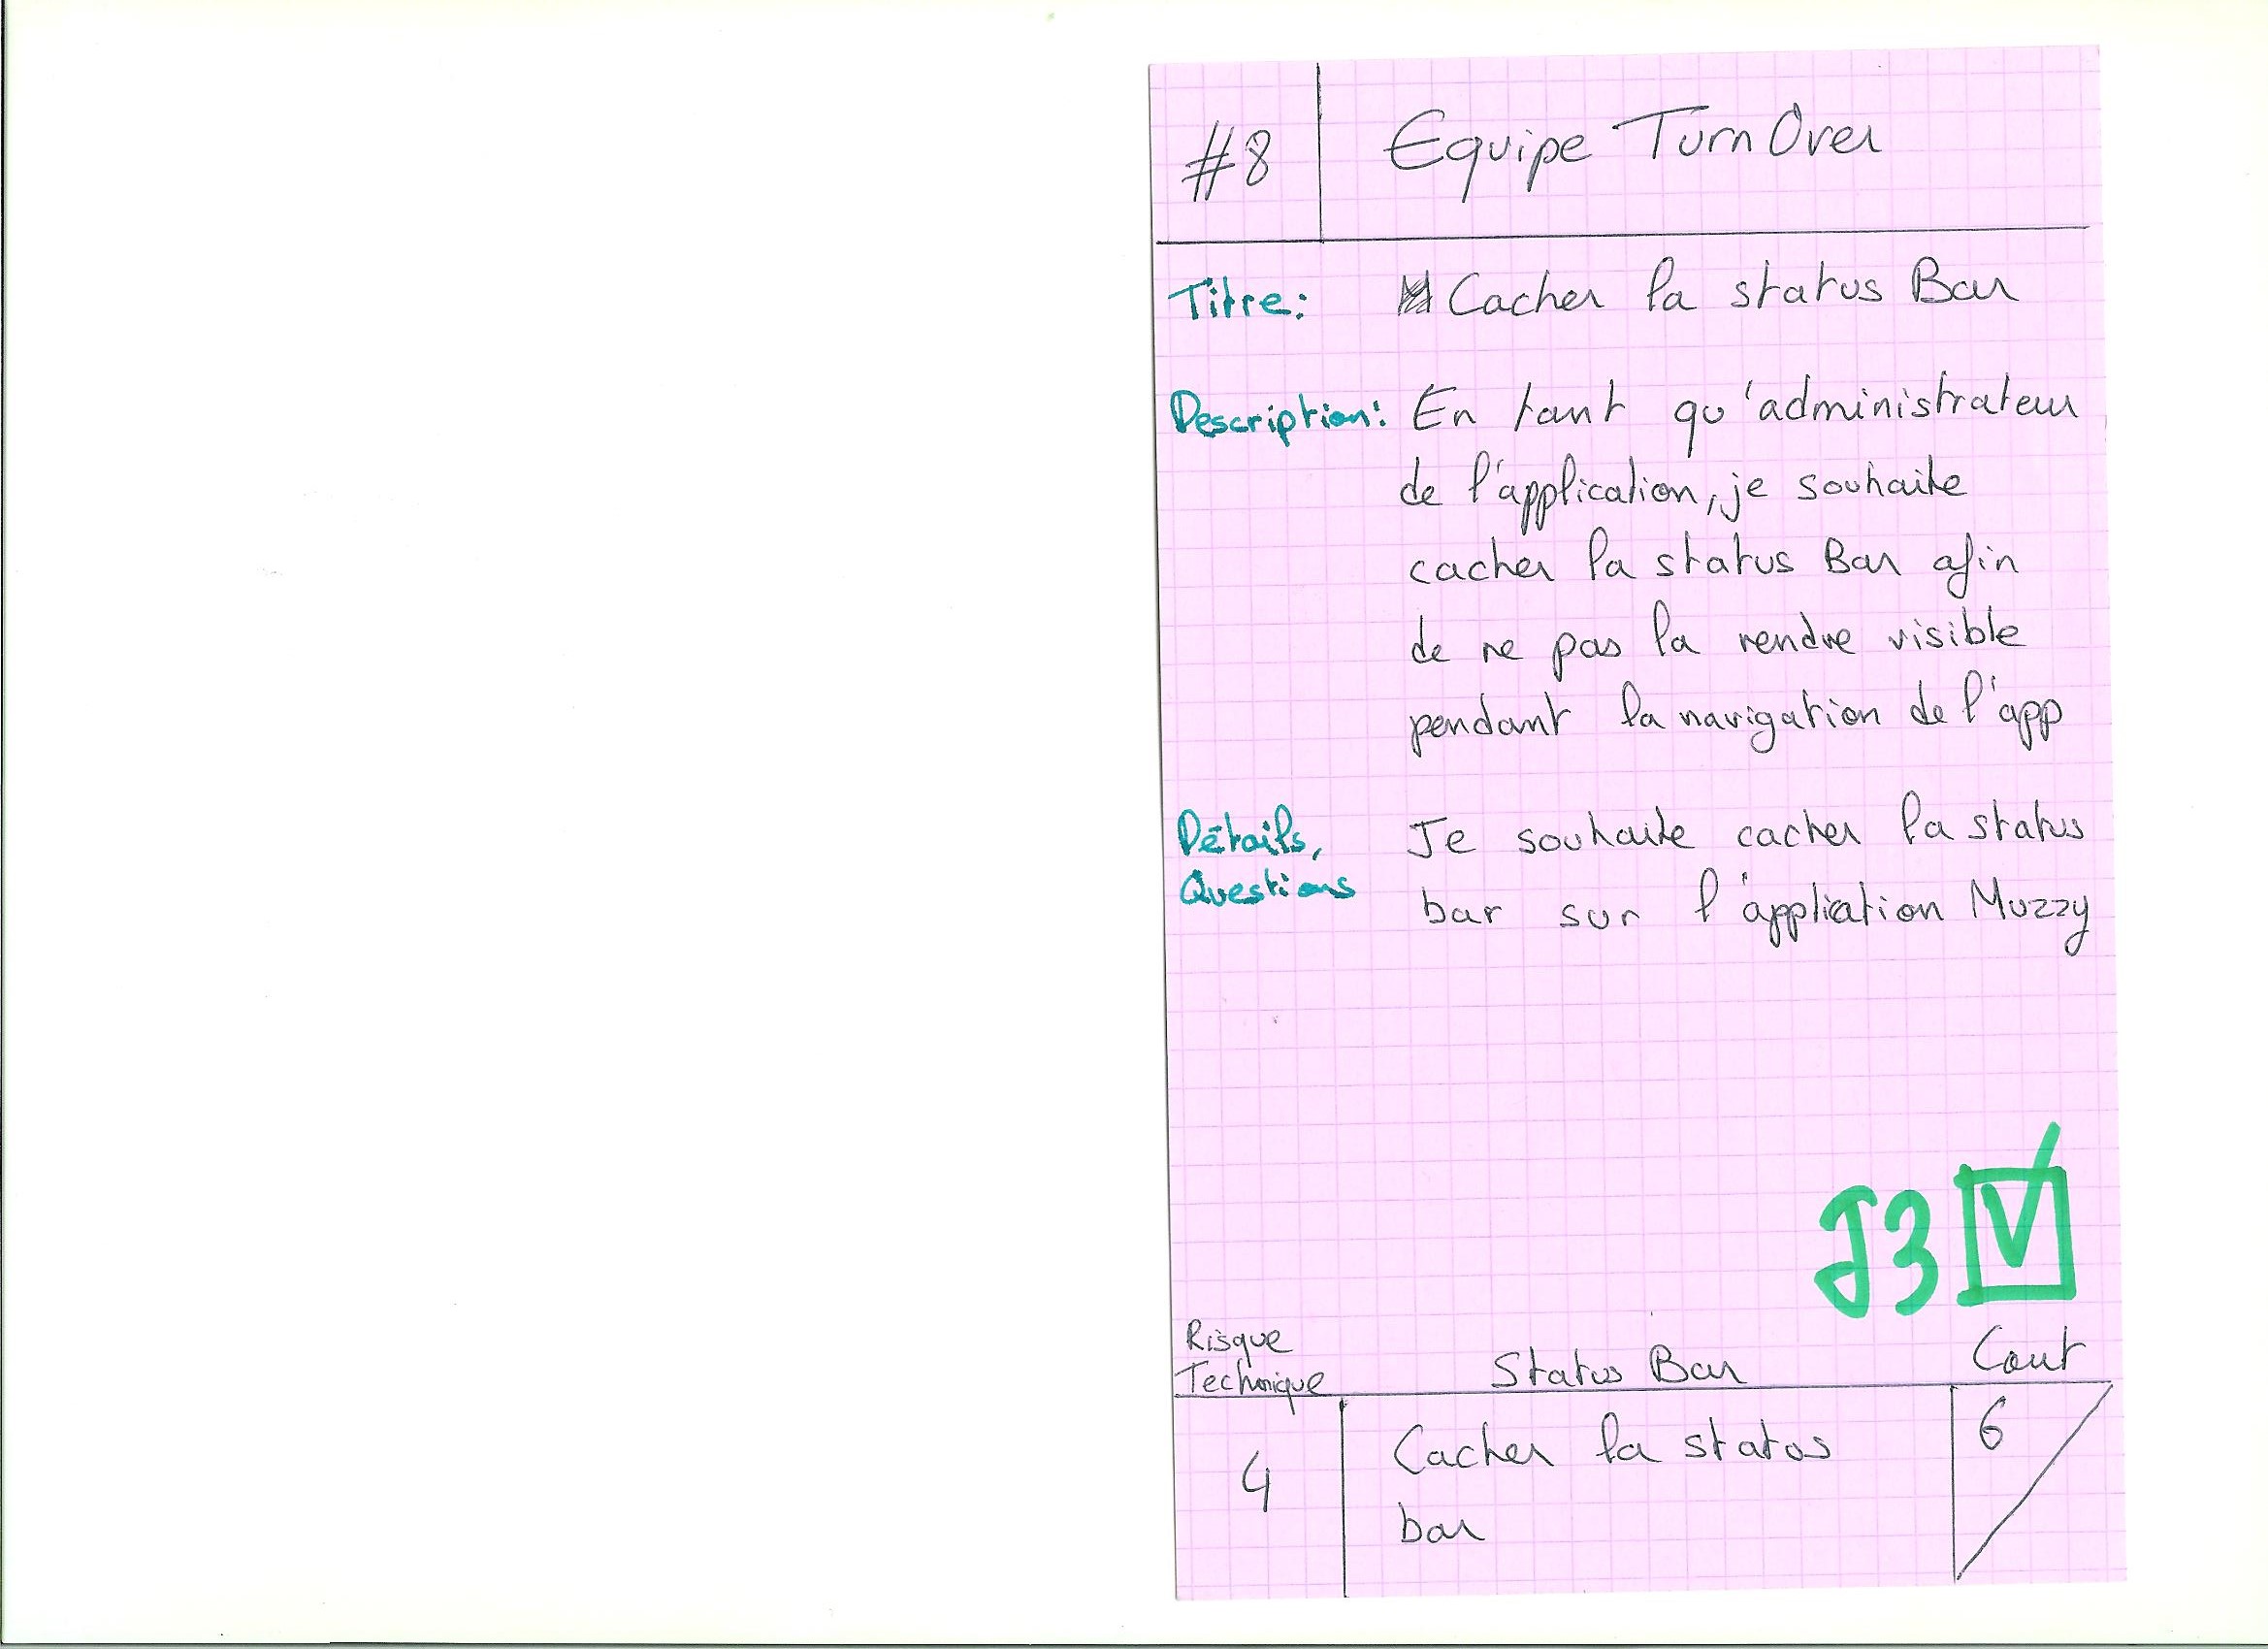 #8 Equipe TurnOver
Titre: Cacher la status Bar
Description: En tant qu'administrateur
de l'application, je souhaite
cacher la status Bar afin
de ne pas la rendre visible
pendant la navigation de l'app
Détails, Je souhaite cacher la status
Questions bar sur l'application Muzzy
J3
Risque
Technique Status Bar Cout
4 Cacher la status 6
bar